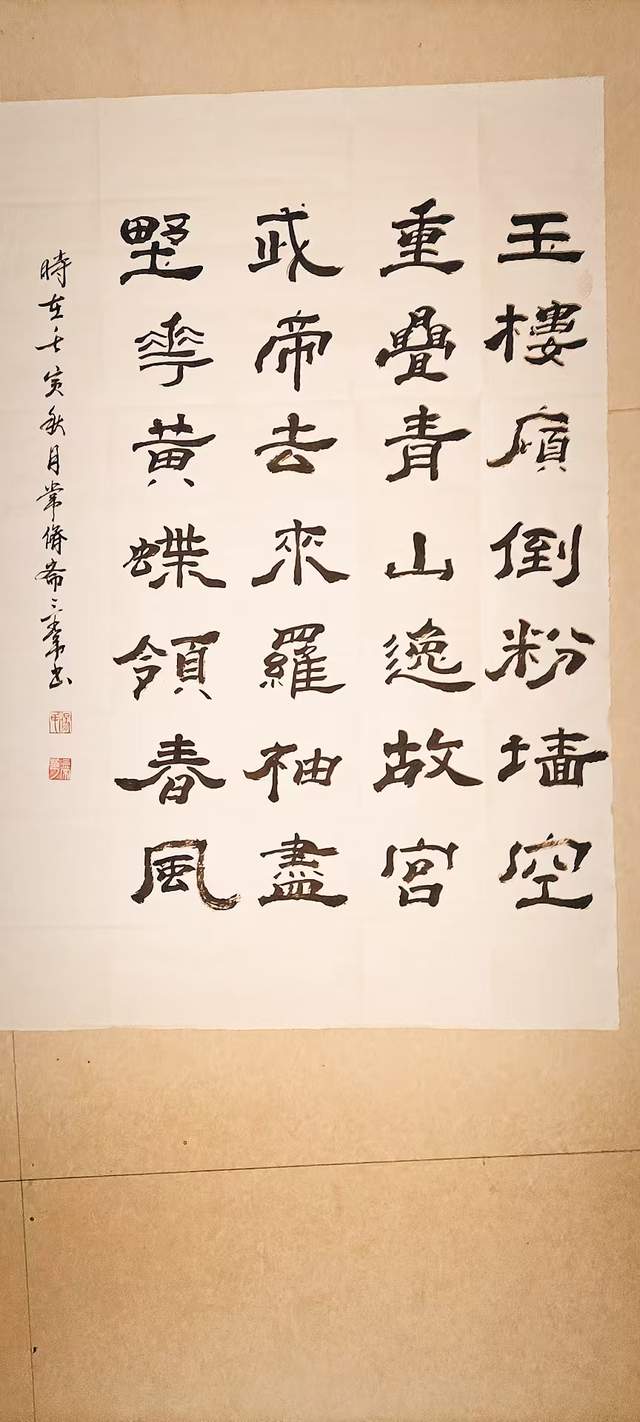 玉樓傾倒粉墙空
重疊青山逸故宮
武帝去來羅袖盡
野花黄蝶領春風
時在壬寅秋月常脩斋